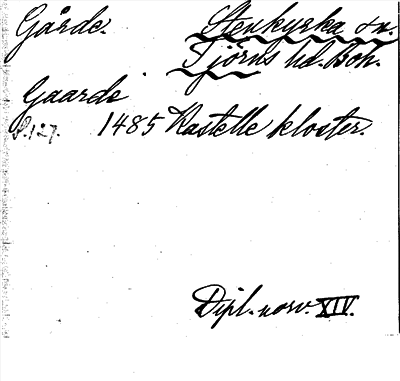 Gårde. Stenkyrka sn.
Tjörns hd. Boh.
Gaarde
S. 127. 1485 Kastelle kloster.
Dipl. norv. XIV.